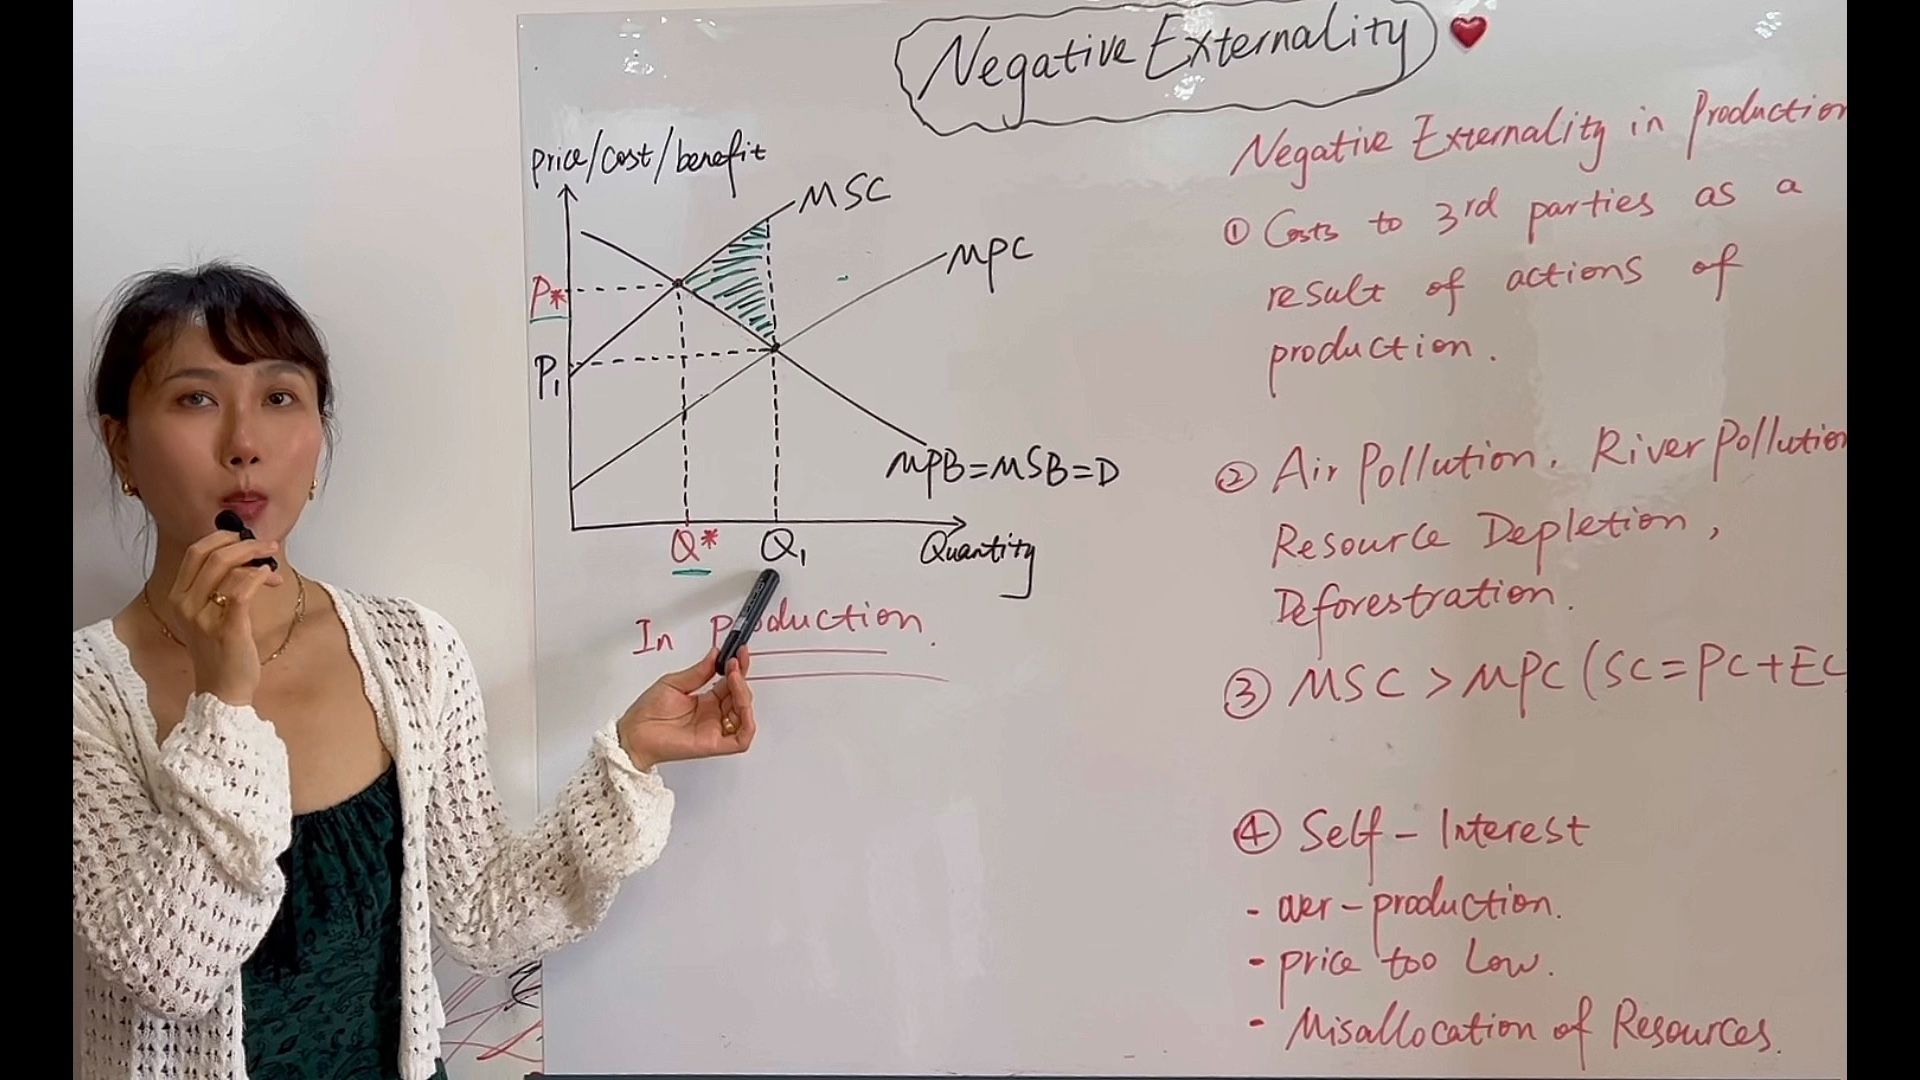 Negative Externality
price/cost/benefit
MSC
MPC
P*
P1
MPB=MSB=D
Q*
Q1
Quantity
In production.
Negative Externality in Production
① Costs to 3rd parties as a
result of actions of
production.
② Air Pollution. River Pollution
Resource Depletion,
Deforestration.
③ MSC > MPC (SC=PC+EC
④ Self-Interest
- over-production.
- price too Low.
- Misallocation of Resources.